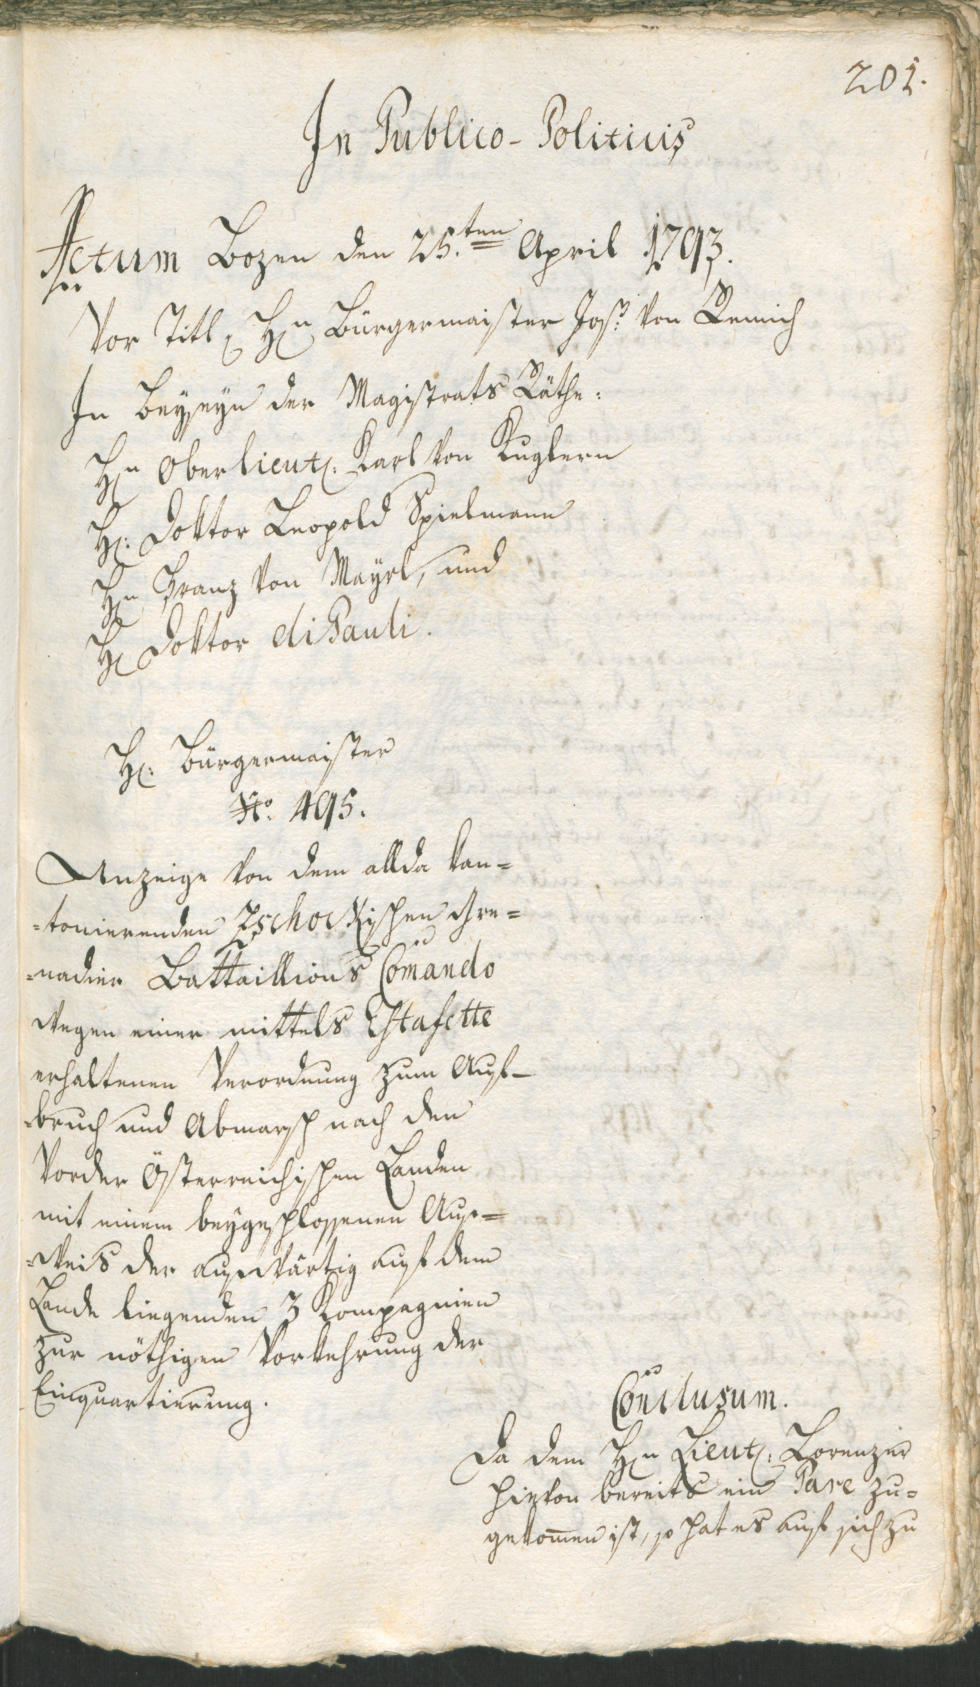 201.
In Publico-Politicis
Actum Bozen den 25.ten April 1793.
Vor Titl. Hn Bürgermaister Jos. von Remich
In Beyseyn der Magistrats Räthe:
Hn Oberlieut. Karl von Kuglern
H. Doktor Leopold Spielmann
Hn Franz von Mayrl, und
H Doktor di Pauli.
H. Bürgermaister
No. 495.
Anzeige von dem allda kan=
=tonierenden Zschockischen Gre=
=nadier Battaillions Comando
wegen einer mittels Estafette
erhaltenen Verordnung zum Auf-
bruch und Abmarsch nach den
Vorder Österreichischen Landen
mit einem beygeschlossenen Aus=
=weis der auswärtig auf dem
Lande liegenden 3 Kompagnien
zur nöthigen Vorkehrung der
Einquartierung.
Conclusum.
Da dem Hn Lieut. Lorenzer
hievon bereits ein Pare zu=
gekomen ist, so hat es auf sich zu